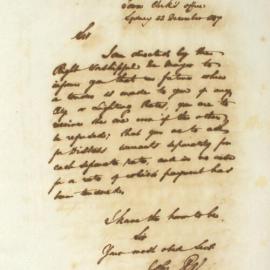 Town Clerk's Office
Sydney 22 December 1857
Sir
I am directed by the
Right Worshipful the Mayor to
inform you that in future when
a tender is made to you of any
City or Lighting Rates, you are to
receive the one even if the other
be refused; that you are to ask
for Distress warrants separately for
each separate rate, and in no case
for a rate of which payment has
been tendered.
I have the honor to be
Sir
Your most obed Servt